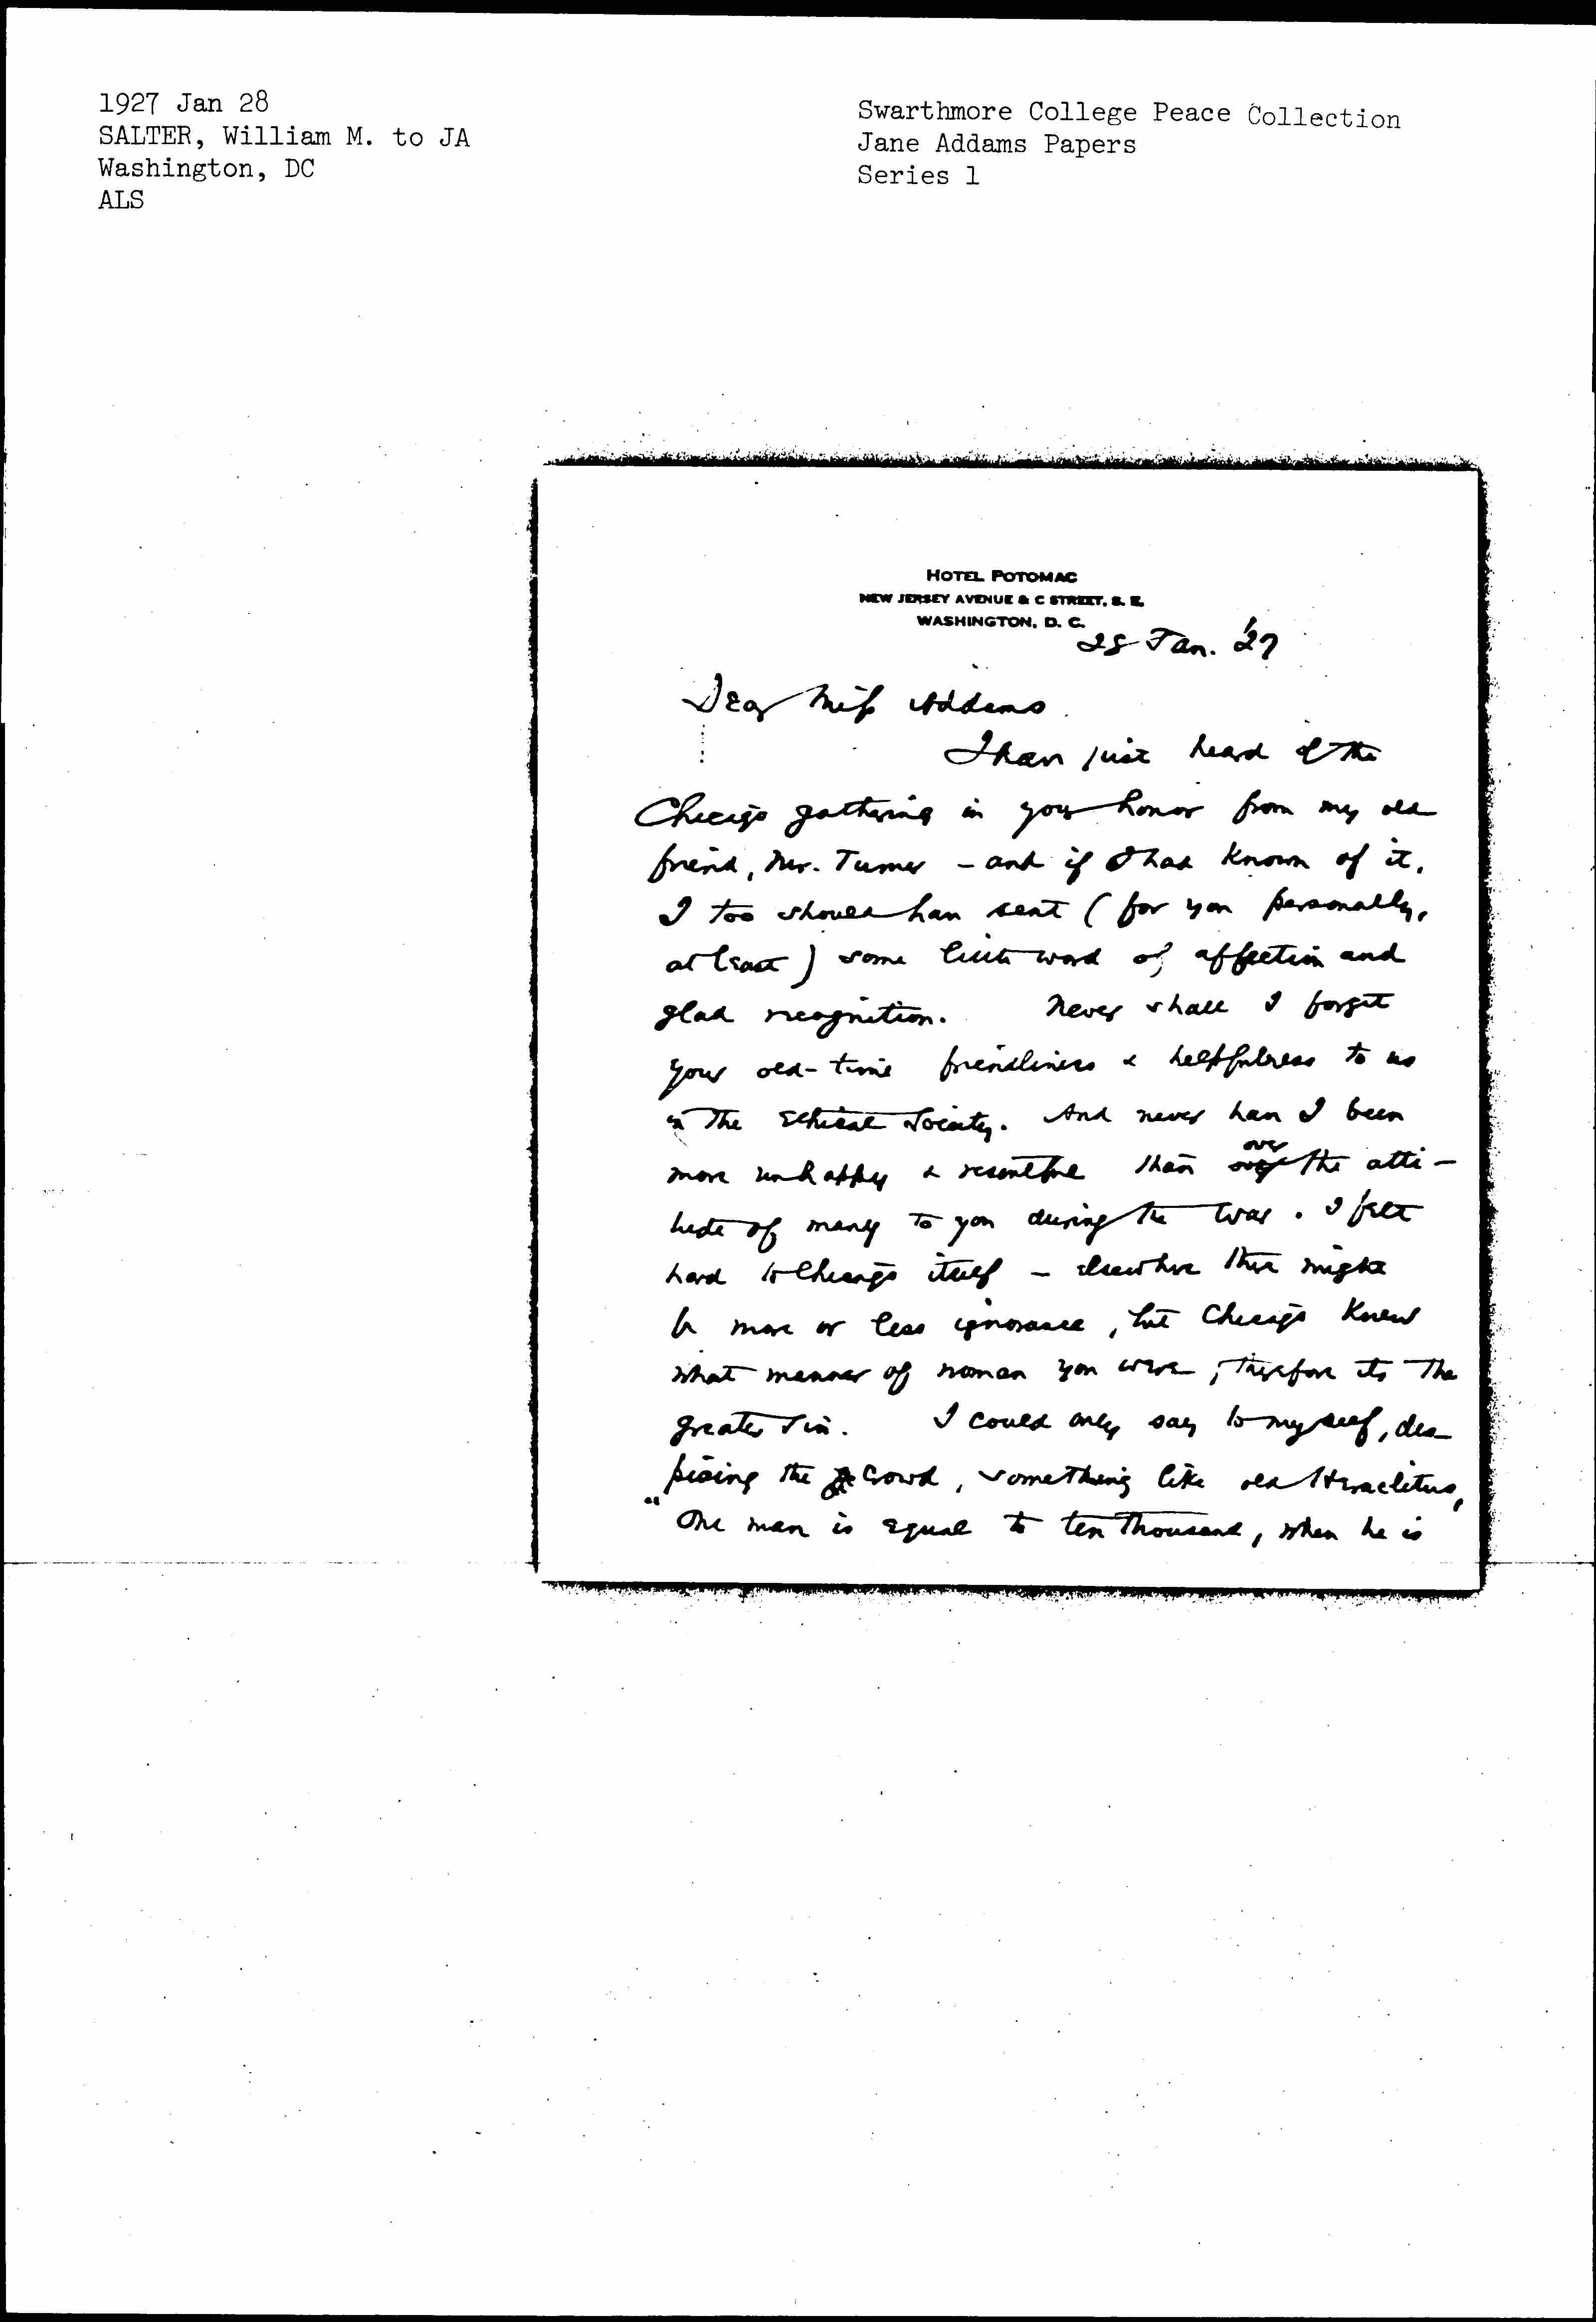 1927 Jan 28
SALTER, William M. to JA
Washington, DC
ALS
Swarthmore College Peace Collection
Jane Addams Papers
Series 1
HOTEL POTOMAC
NEW JERSEY AVENUE & C STREET, S. E.
WASHINGTON, D. C.
28 Jan. '27
Dear Miss Addams
I have just heard of the
Chicago gathering in your honor from my old
friend, Mr. Turner - and if I had known of it,
I too should have sent (for you personally,
at least) some little word of affection and
glad recognition. Never shall I forget
your old-time friendliness & helpfulness to us
in the Ethical Society. And never have I been
more unhappy & resentful than over over the atti-
tude of many to you during the war. I felt
hard to Chicago itself - elsewhere there might
be more or less ignorance, but Chicago knew
what manner of woman you were; therefore its the
greater sin. I could only say to myself, des-
pising the crowd, something like old Heraclitus,
"One man is equal to ten thousand, when he is